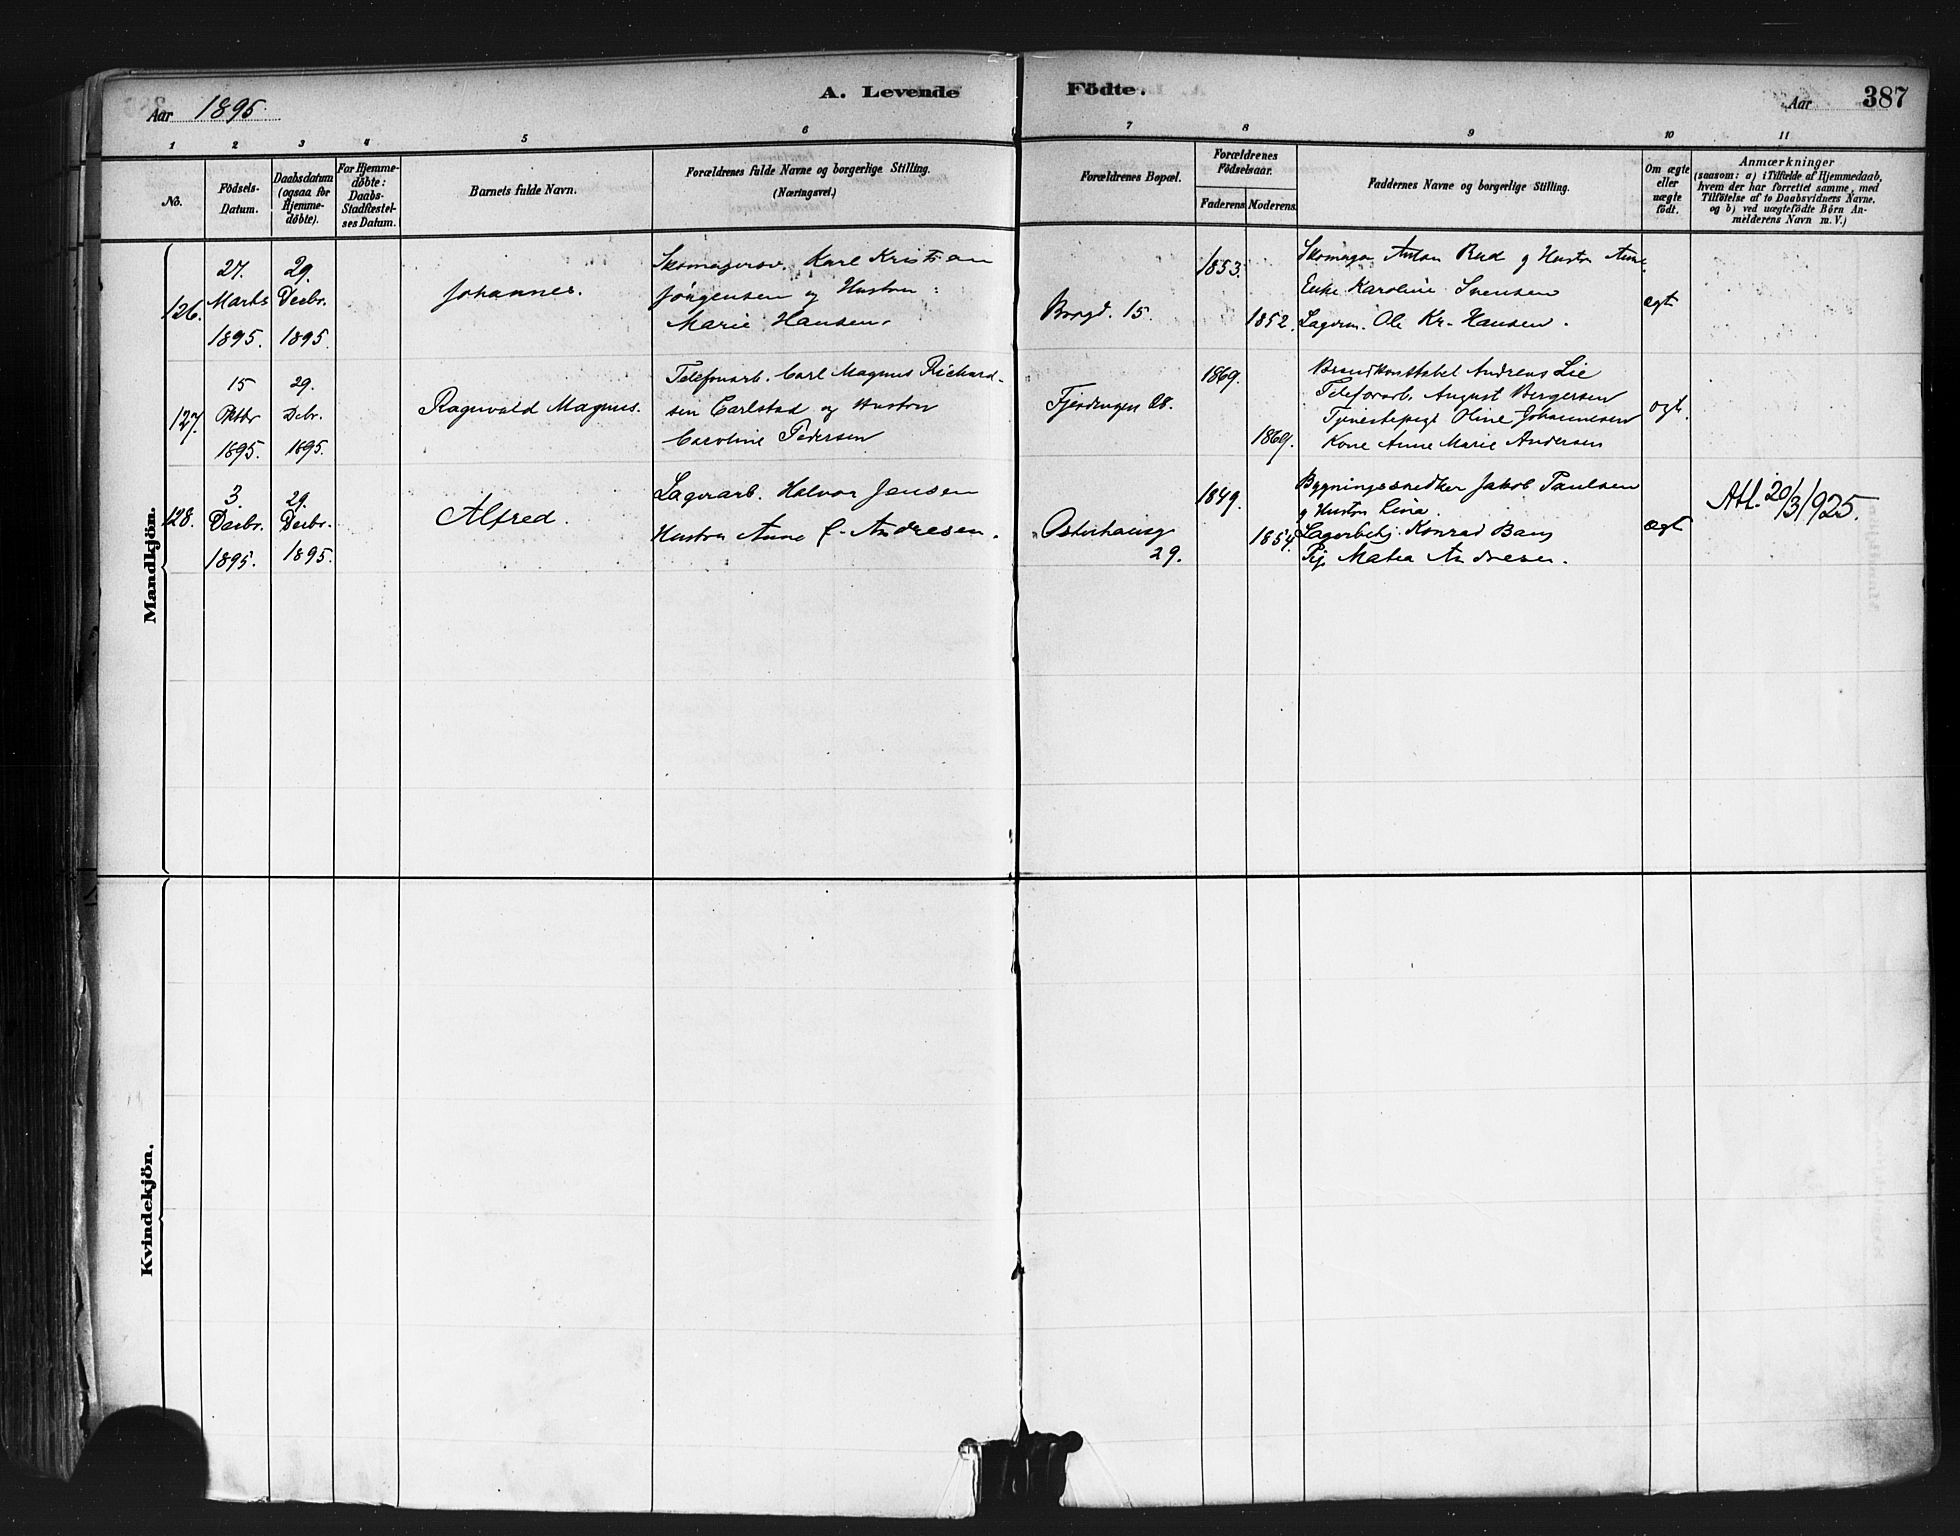 Aar 1895.
A. Levende Födte.
Aar
387
1 2 3 4 5 6 7 8 9 10 11
No.
Födsels-
Datum.
Daabsdatum
(ogsaa for
Hjemme-
döbte).
For Hjemme-
döbte:
Daabs-
Stadfæstel-
ses Datum.
Barnets fulde Navn.
Forældrenes fulde Navne og borgerlige Stilling.
(Næringsvei.)
Forældrenes Bopæl.
Forældrenes
Födselsaar.
Faderens.
Moderens.
Faddernes Navne og borgerlige Stilling.
Om ægte
eller
uægte
födt.
Anmærkninger
(saasom: a) i Tilfælde af Hjemmedaab,
hvem der har forrettet samme, med
Tilföielse af to Daabsvidners Navne,
og b) ved uægtefödte Börn An-
melderens Navn m. V.)
Mandkjön.
126.
27.
Marts
1895.
29.
Decbr.
1895.
Johannes.
Skomagersv. Karl Kristian
Jörgensen og Hustru
Marie Hansen.
Borgd. 15.
1853.
1852.
Skomager Anton Rud og Hustru Anne
Enke Karoline Svensen
Lagerm. Ole Kr. Hansen.
ægt
127.
15
Oktbr
1895.
29.
Debr.
1895.
Ragnvald Magnus.
Telefonarb. Carl Magnus Richard-
sen Carlstad og Hustru
Caroline Pedersen
Fjerdingen 28.
1869.
1869.
Brandkonstabel Andreas Lie
Telefonarb. August Bergersen
Tjenestepige Oline Johannesen
Kone Anne Marie Andersen
ægt.
128.
3.
Decbr.
1895.
29.
Decbr.
1895.
Alfred.
Lagerarb. Halvor Jensen
Hustru Anne C. Andresen.
Osterhausg
29.
1849.
1854.
Bygningssnedker Jakob Paulsen
og Hustru Lina.
Lagerbetj. Konrad Bang
Pig. Matea Andresen.
ægt
Att. 20/3 1925.
Kvindekjön.